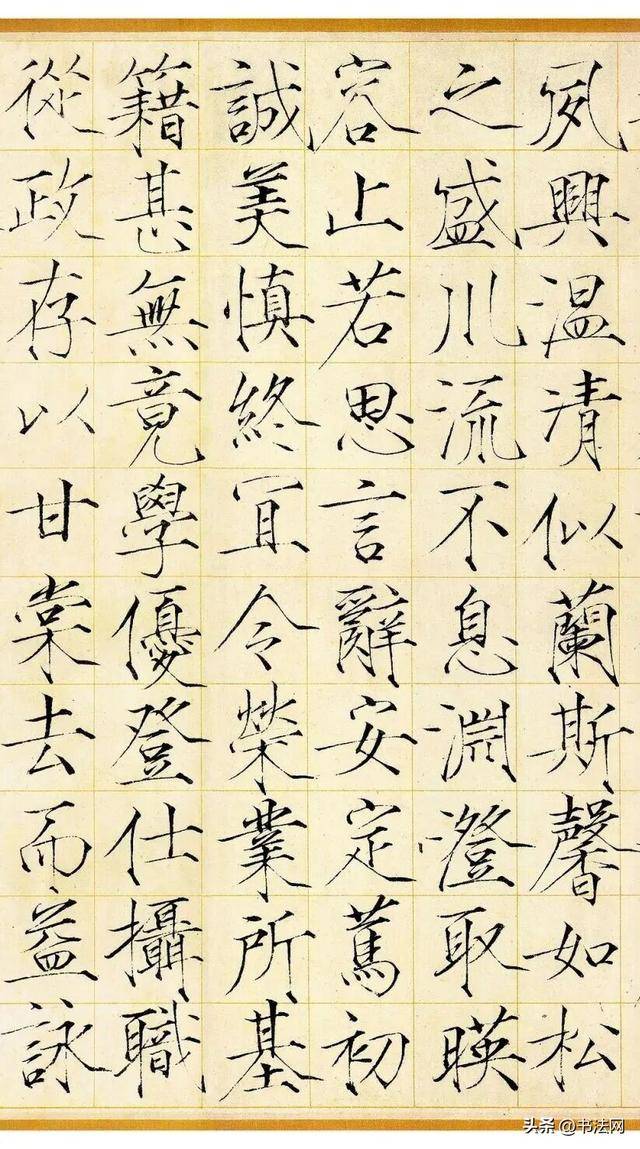 夙興温清似蘭斯馨如松
之盛川流不息淵澄取暎
容止若思言辭安定篤初
誠美慎終宜令榮業所基
籍甚無竟學優登仕攝職
從政存以甘棠去而益詠
头条 @书法网